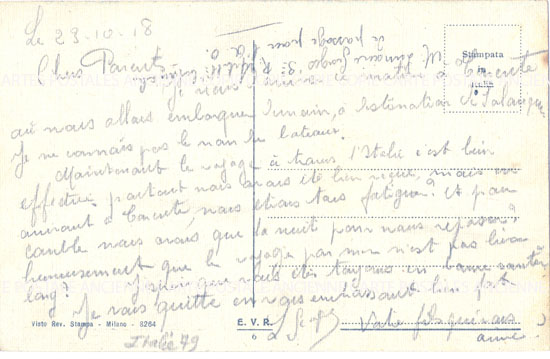 Le 23-10-18
Chers Parents
nous sommes ce matin à Tarente
où nous allons embarquer demain, à destination de Salonique
Je ne connais pas le nom du bateau.
Maintenant le voyage à travers l'Italie c'est bien
effectué partout nous avons été bien reçu, mais en
arrivant à Tarente, nous étions tous fatigué, et pour
comble nous avons que la nuit pour nous reposer
heureusement que le voyage par mer n'est pas bien
long? que vous êtes toujours en bonne santé
Je vous quitte en vous embrassant bien
Votre fils qui vous
aime
Stampata
in
Visto Rev. Stampa - Milano - 8264
E. V. R.
Italie 79